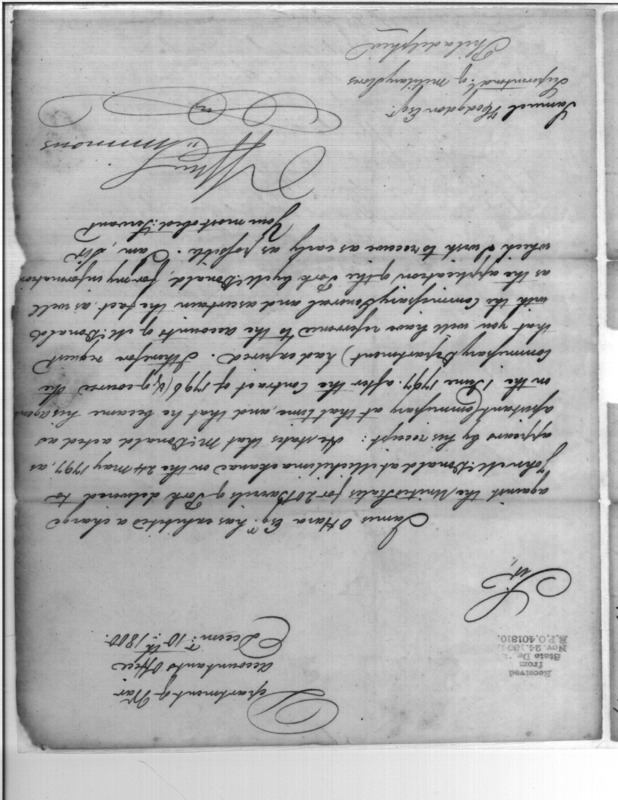 Department of War
Accountants Office
Decem:r 10th 1800.
Received
from
State De
Nov. 24, 189
R.P.O. 401810.
Sir,
James O Hara Esqr. has exhibited a charge
against the United States for 20 Barrels of Pork delivered to
John McDonald at Michilimackanac on the 24 May 1797, as
appears by his receipt: He states that McDonald acted as
assistant Commissary at that time, and that he became his agent
on the 1 June 1797. after the Contract of 1796 (& of course the
Commissary Department) had expired. I therefore request
that you will have reference to the accounts of McDonald
with the Commissary General and ascertain the fact, as well
as the application of the Pork by McDonald, for my information
which I wish to receive as early as possible. I am, Sir
Your most obed: Servant
Wm Simmons
Samuel Hodgdon Esqr.
Superintendt. of Military Stores
Philadelphia